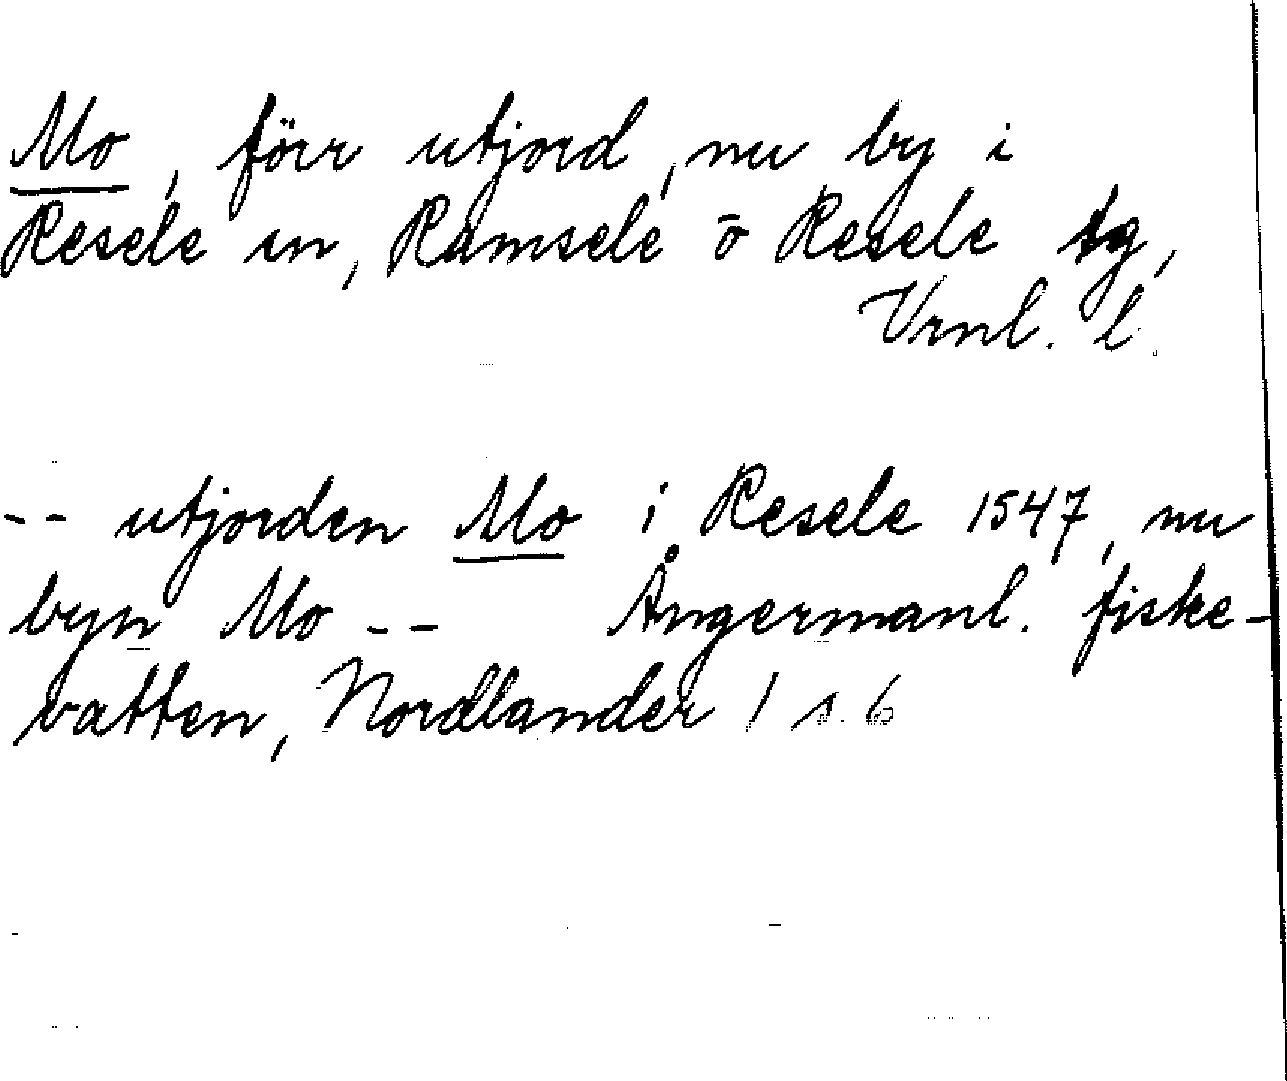 Mo, förr utjord, nu by i
Resele sn, Ramsele o Resele tg,
Vrnl. l.
-- utjorden Mo i Resele 1547, nu
byn Mo -- Ångermanl. fiske-
vatten, Nordlander 1 s. 6